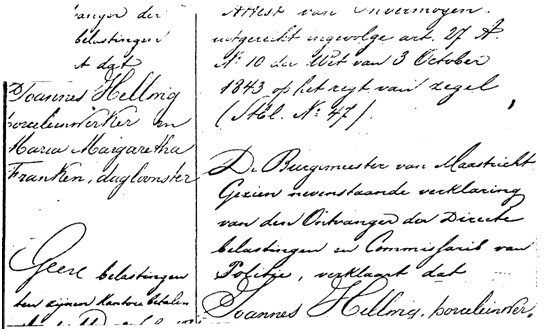 belastingen
dat
Joannes Helling
porceleinwerker en
Maria Margaretha
Franken, dagloonster
Geene belastingen
ten zijnen kantore betalen
Attest van Onvermogen.
uitgereikt ingevolge art. 27 A.
No. 10 der Wet van 3 October
1843 op het regt van zegel
(Stbl. No. 47).
De Burgemeester van Maastricht
Gezien nevenstaande verklaring
van den Ontvanger der Directe
belastingen en Commissaris van
Politie, verklaart dat
Joannes Helling, porceleinwer,